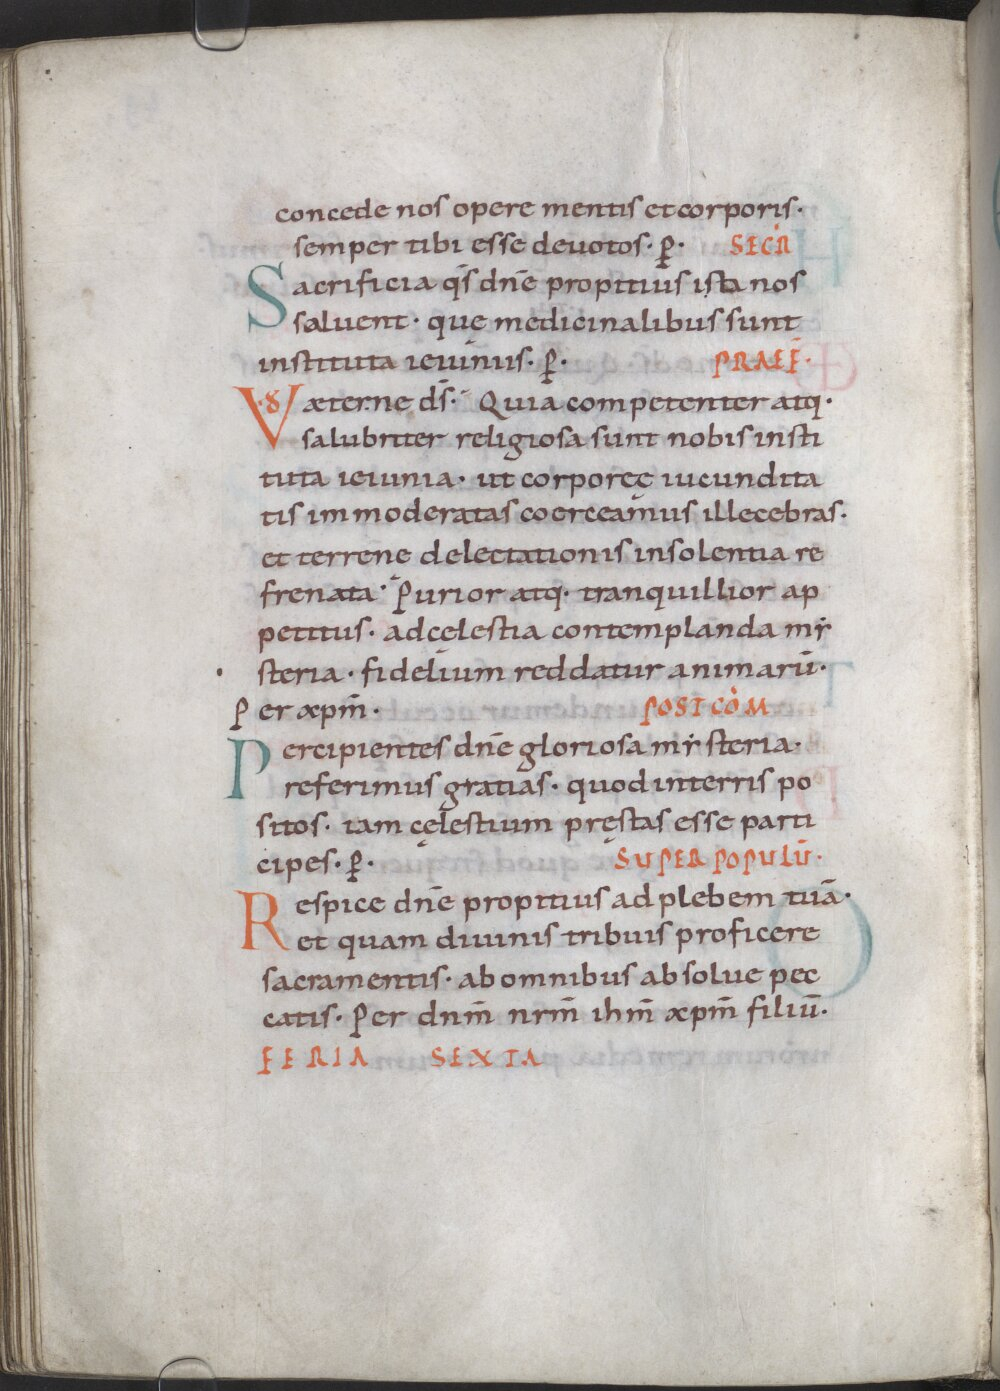 concede nos opere mentis et corporis·
semper tibi esse deuotos· p̱· SECR̄
Sacrificia qs̄ dnē propitius ista nos
saluent· quę medicinalibus sunt
instituta ieiuniis· p̱· PRAEF̄·
V·D· æterne ds̄· Quia competenter atq·
salubriter religiosa sunt nobis insti
tuta ieiunia· ut corporeę iucundita
tis immoderatas coerceamus illecebras·
et terrene delectationis insolentia re
frenata· Purior atq· tranquillior ap
petitus· ad cęlestia contemplanda mẏ
steria· fidelium reddatur animarū·
Per xpm̄· POST CŌM
Percipientes dnē gloriosa mẏsteria·
referimus gratias· quod in terris po
sitos· iam cęlestium pręstas esse parti
cipes· p̱· SUPER POPULŪ·
Respice dnē propitius ad plebem tuā·
et quam diuinis tribuis proficere
sacramentis· ab omnibus absolue pec
catis· Per dnm̄ nrm̄ ihm̄ xpm̄ filiū·
FERIA SEXTA